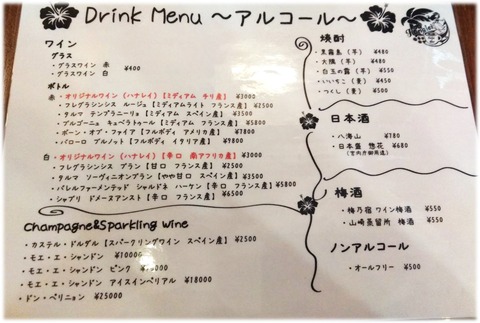 Drink Menu ～アルコール～
ワイン
グラス
・グラスワイン 赤
・グラスワイン 白
¥400
ボトル
赤・オリジナルワイン（ハナレイ）【ミディアム チリ産】 ¥3000
・フレグラシンシス ルージュ【ミディアムライト フランス産】 ¥2500
・タルマ テンプラニーリョ【ミディアム スペイン産】 ¥3500
・ブルゴーニュ キュベラトゥール【ミディアム フランス産】 ¥5800
・ボーン・オブ・ファイア【フルボディ アメリカ産】 ¥7800
・バローロ ブルノット【フルボディ イタリア産】 ¥9800
白・オリジナルワイン（ハナレイ）【辛口 南アフリカ産】 ¥3000
・フレグラシンシス ブラン【甘口 フランス産】 ¥2500
・タルマ ソーヴィニオンブラン【やや甘口 スペイン産】 ¥3500
・バレルファーメンテッド シャルドネ ハーケン【辛口 フランス産】 ¥5800
・シャブリ ドメーヌアンスト【辛口 フランス産】 ¥6500
Champagne&Sparkling wine
・カステル・ドルグル【スパークリングワイン スペイン産】 ¥2500
・モエ・エ・シャンドン ¥10000
・モエ・エ・シャンドン ピンク
・モエ・エ・シャンドン アイスインペリアル ¥18000
・ドン・ペリニョン ¥25000
焼酎
・黒霧島（芋） ¥480
・大隅（芋） ¥480
・白玉の露（芋） ¥550
・いいちこ（麦） ¥450
・つくし（麦） ¥500
日本酒
・八海山 ¥780
・日本盛 惣花 ¥680
（宮内庁御用達）
梅酒
・梅乃宿 ワイン梅酒 ¥550
・山崎蒸留所 梅酒 ¥550
ノンアルコール
・オールフリー ¥500